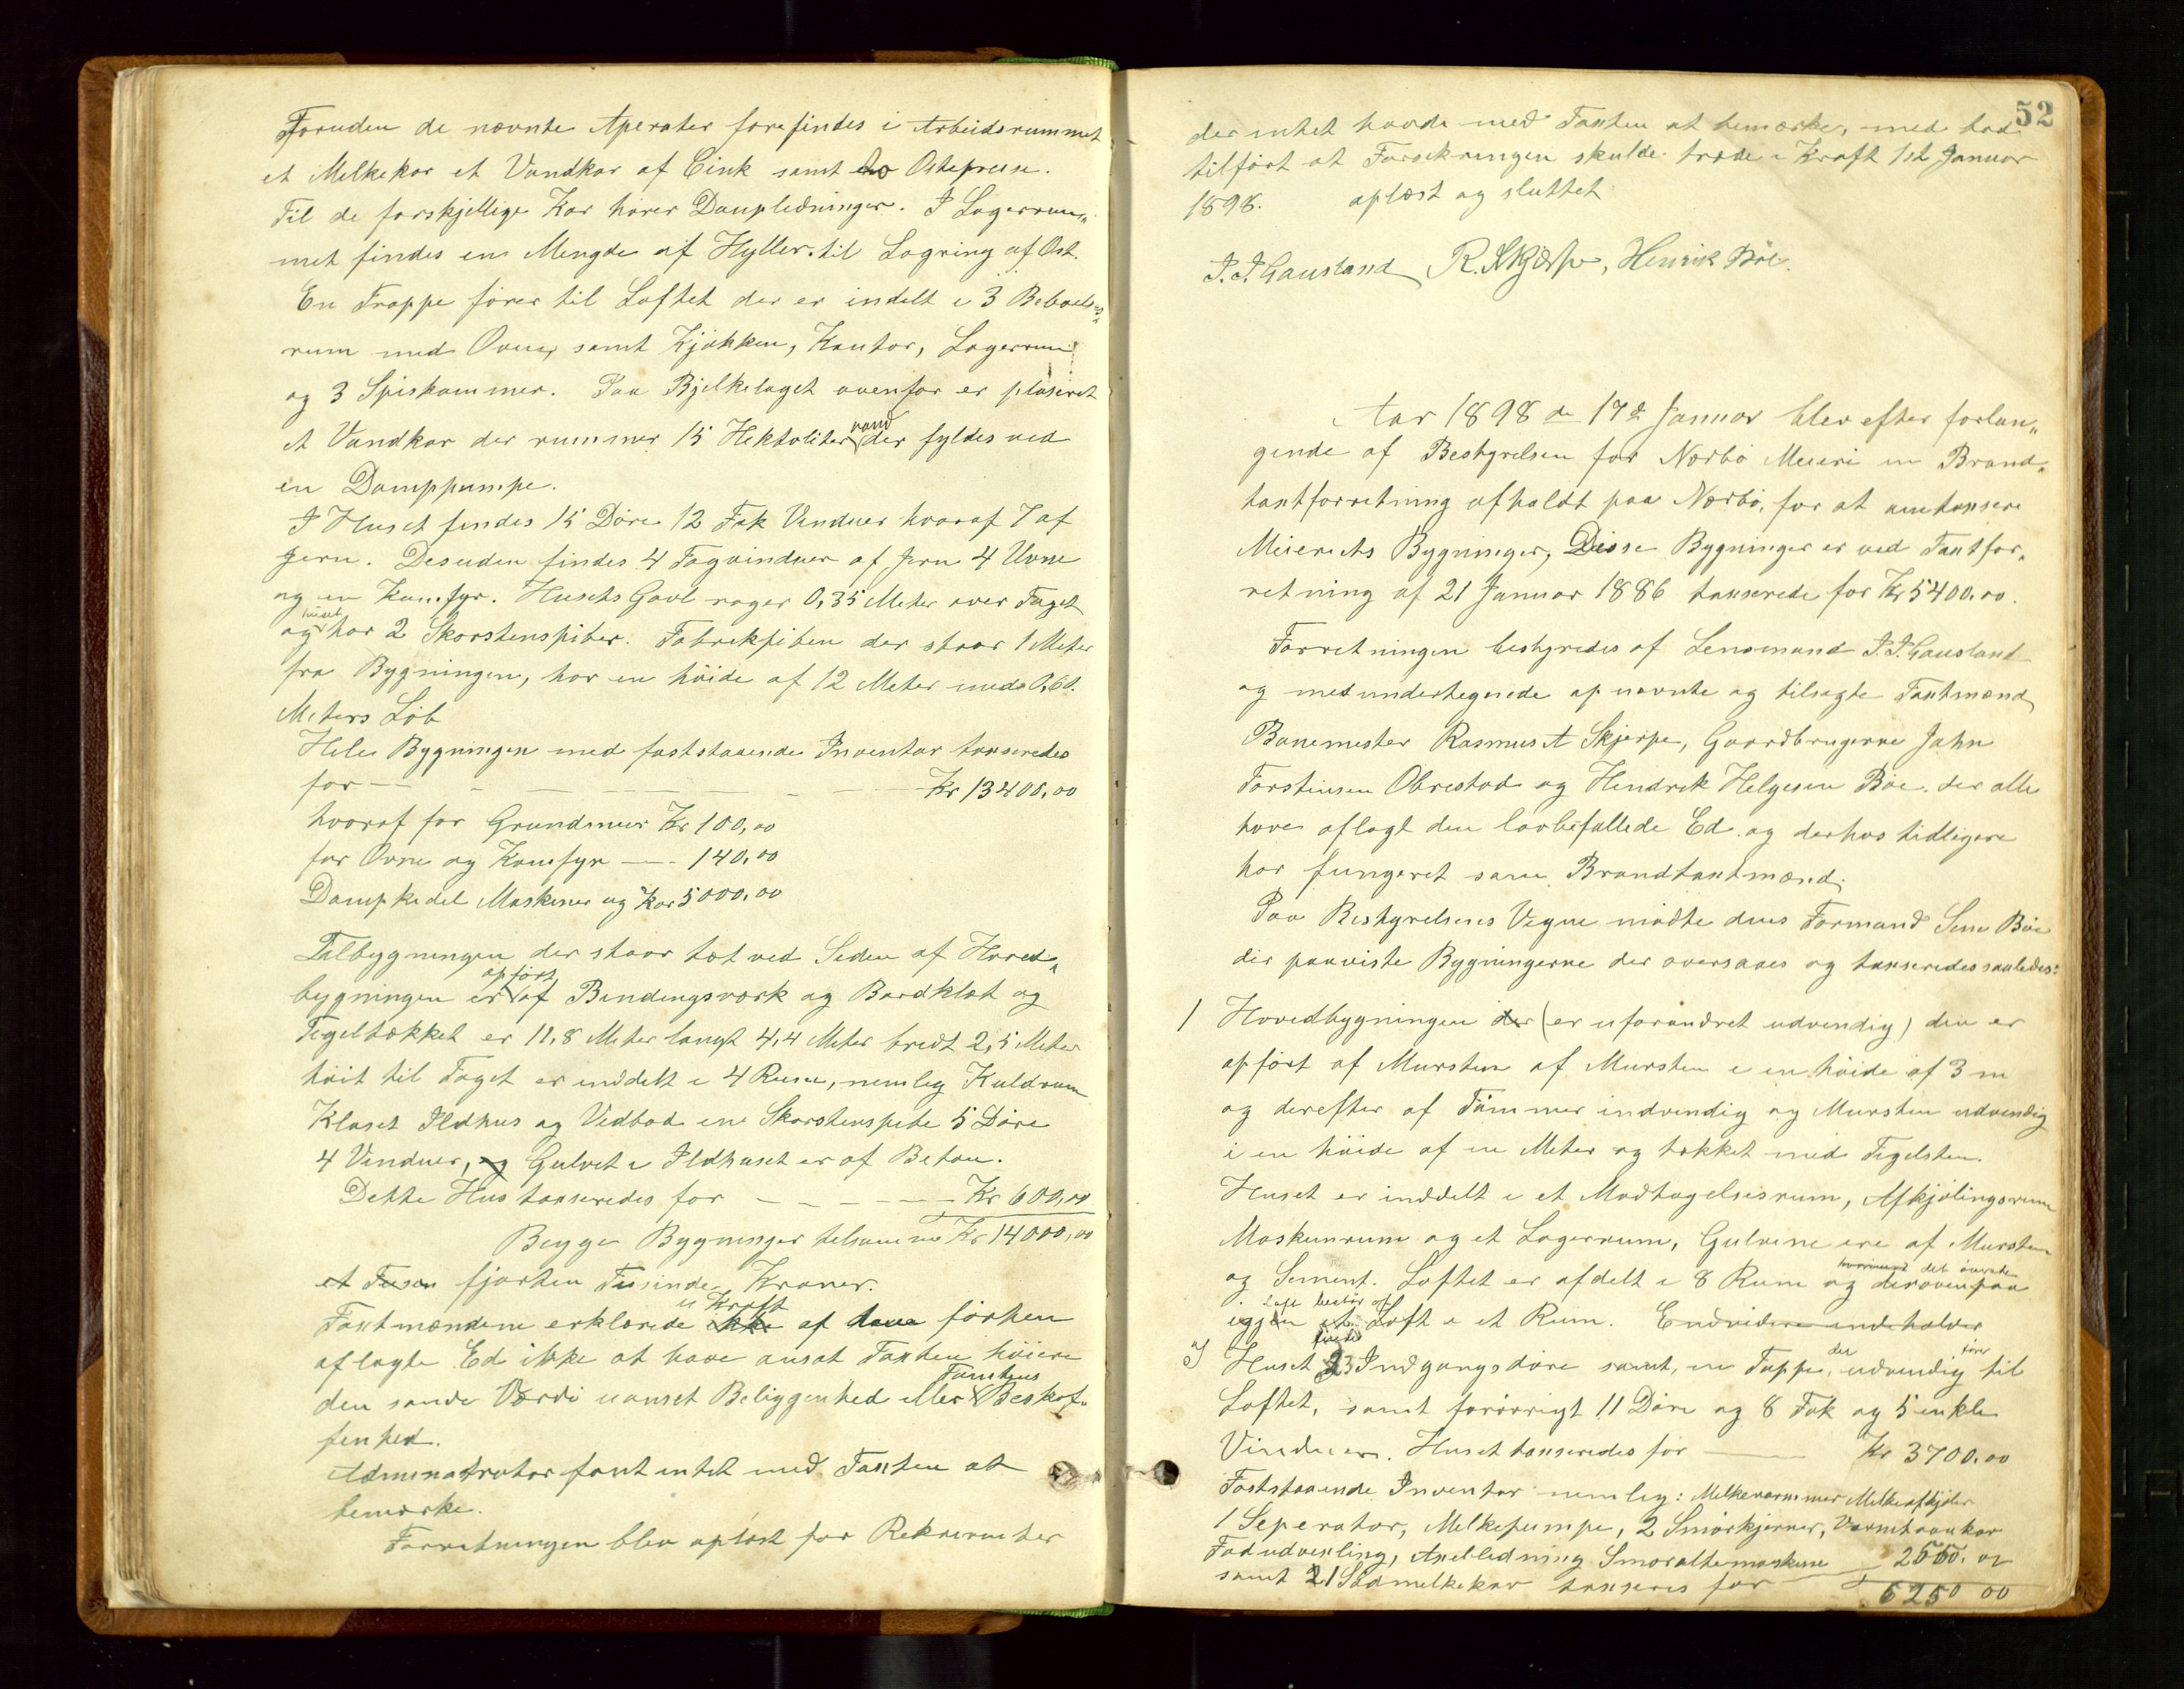 Foruden de nævnte Aperater forefindes i Arbeidsrummet
et Melkekar et Vandkar af Cink samt to Ostepresse.
Til de forskjellige Kar hører Dampledninger. I Lagerrum„
met findes en Mengde af Hyller til Lagring af Ost.
En Trappe fører til Loftet der er indelt i 3 Beboels„
rum med Ovne, samt Kjøkken, Kontor, Lagerrum
og 3 Spiskammer. Paa Bjelkelaget ovenfor er plaseret
et Vandkar der rummer 15 Hektoliter vand der fyldes ved
en Damppumpe.
I Huset findes 15 Døre 12 Fak Vinduer hvoraf 7 af
Jern. Desuden findes 4 Tagvinduer af Jern 4 Ovne
og en Komfyr. Husets Gavl rager 0,35 Meter over Taget
og huset har 2 Skorstenspiber. Fabrekpiben der staar 1 Meter
fra Bygningen, har en høide af 12 Meter med 0,60.
Meters Løb
Hele Bygningen med faststaaende Inventar taxseredes
for — — — — — Kr 13400,00
hvoraf for Grundmur Kr 100,00
for Ovne og Komfyr — - 140,00
Dampkedel Maskiner og Kar 5000,00
Tilbygningen der staar tæt ved Siden af Hoved„
bygningen er opført af Bindingsværk og Bordklæt og
Tegeltækket er 11,8 Meter langt 4,4 Meter bredt 2,5 Meter
høit til Taget er inddelt i 4 Rum, nemlig Kuldrum
Kloset Ildhus og Vedbod en Skorstenspibe 5 Døre
4 Vinduer, og Gulvet i Ildhuset er af Beton.
Dette Hus taxseredes for — — — — Kr 600,00
Begge Bygninger tilsammen Kr 14000,00
et Tusen fjorten Tusinde Kroner.
Taxtmændene erklærede i Kraft af førhen
aflagte Ed ikke at have ansat Taxten høiere
den sande Værdi uanset Beliggenhed eller Tomtens Beskaf„
fenhed.
Admenastrator fant intet med Taxten at
bemærke.
Forretningen blev oplæst for Rekverenter
52
der intet havde med Taxten at bemærke, med
tilført at Forsekringen skulde træde i Kraft 1st Januar
1898. oplæst og sluttet
J. J. Gausland R. Skjerpe, Henrik Bøe.
Aar 1898 den 17de Januar blev efter forlan„
gende af Bestyrelsen for Nærbø Meieri en Brand„
taxtforretning afholdt paa Nærbø, for at omtaxsere
Meieriets Bygninger, Disse Bygninger er ved Taxtfor„
retning af 21 Januar 1886 taxserede for Kr 5400.00.
Forretningen bestyredes af Lensmand J. J. Gausland
og med undertegnede opnævnte og tilsagte Taxtmænd
Banemester Rasmus A Skjerpe, Gaardbrugerne John
Torstensen Obrestad og Hendrek Helgesen Bøe. der alle
have aflagt den lovbefallede Ed. og derhos tidligere
har fungeret som Brandtaxtmænd.
Paa Bestyrelsens Vegne mødte dens Formand Sem Bøe
der paaviste Bygningerne der oversaaes og taxseredes saaledes:
1 Hovedbygningen der (er uforandret udvendig) den er
opført af Mursten af Mursten i en høide af 3 m
og derefter af Tømmer indvendig og Mursten udvendig
i en høide af en Meter og tækket med Tegelsten.
Huset er inddelt i et Modtagelsesrum, Afkjølingsrum
Maskenrum og et Lagerrum, Gulvene ere af Mursten
og Sement. Loftet er afdelt i 8 Rum og hvorimod det øverste derovenpaa
Loft består af igjen et Loft i et Rum. Endvidere indeholder
I Huset findes 23 Indgangsdøre samt, en Tappe, der udvendig fører til
Loftet, samt forøvrigt 11 Døre og 8 Fak og 5 enkle
Vinduer. Huset taxseredes for — Kr 3700.00
Faststaaende Inventar nemlig: Melkevarmmer Melkeafkjøler
1 Seperator, Melkepumpe, 2 Smørkjerner,
Fadudvexling, Axelledning Smøraltemaskine 2550.00
samt 21 Sødmelkekar taxseres for
6250 00